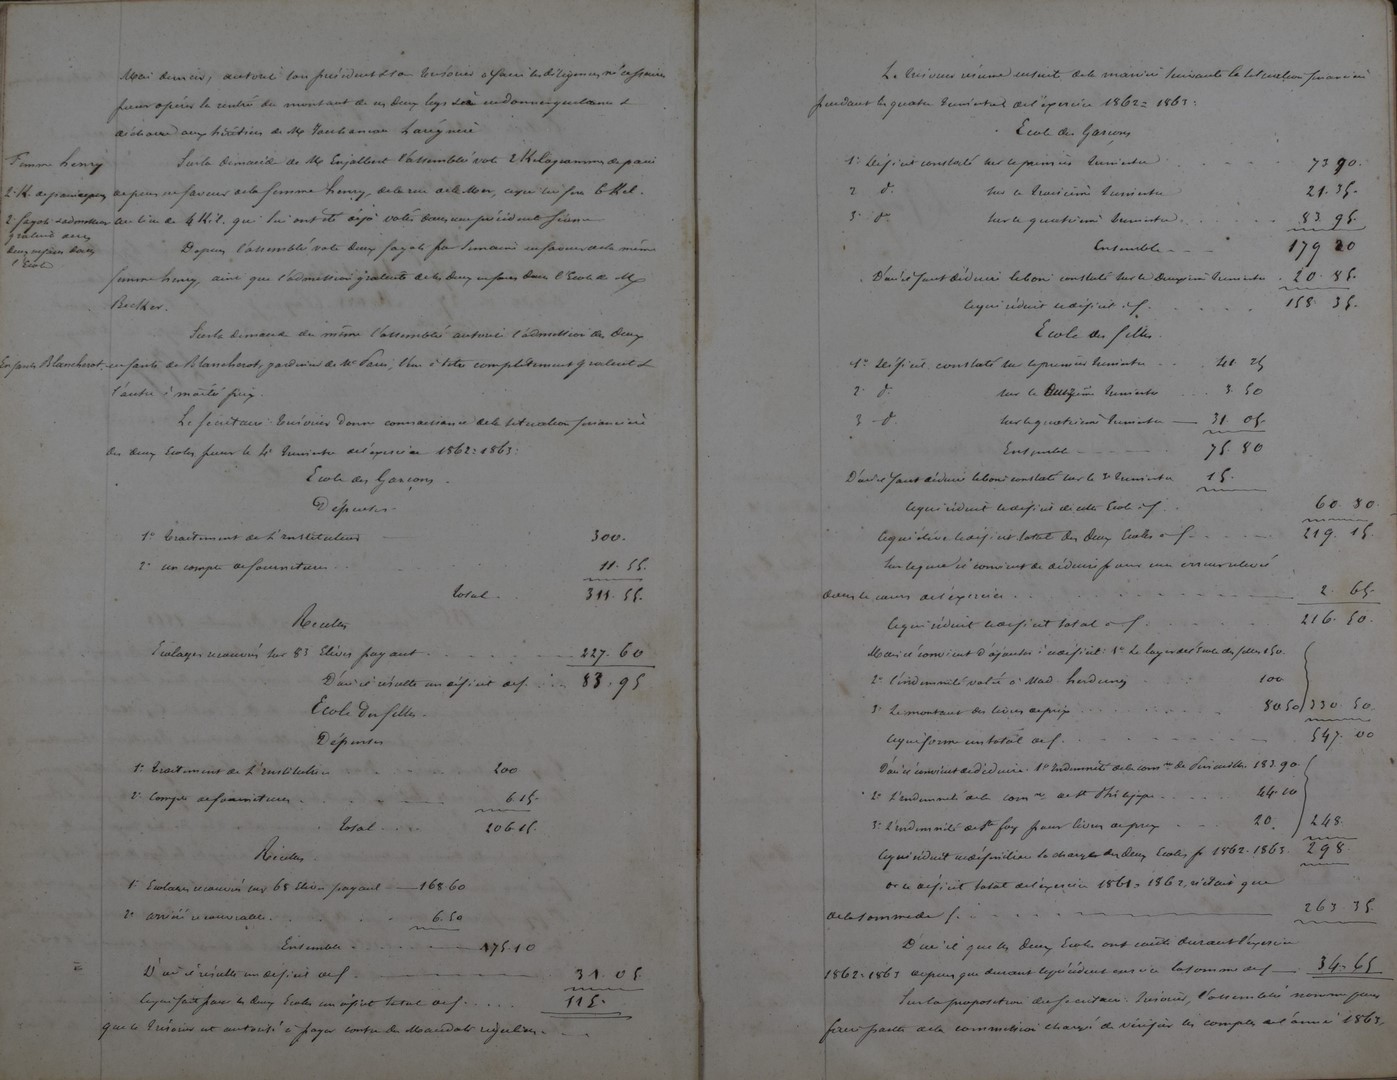 Mai dernier, autorise son président & son trésorier à faire les diligences nécessaires
pour opérer la rentrée du montant de ces deux legs & à en donner quittance &
décharge aux héritiers de Mr
Femme henry
2 K. de pain
2 fagots & admission
gratuite de ses
deux enfans dans
l'Ecole
Sur la demande de Mr Enjalbert l'assemblée vote 2 Kilogrammes de pain
de plus en faveur de la femme henry, de la rue de la Mer, ce qui lui fera 6 Kil.
au lieu de 4 Kil. qui lui ont été déjà votés dans une précédente séance
Depuis l'assemblée vote deux fagots par semaine en faveur de la même
femme henry, ainsi que l'admission gratuite de ses deux enfans dans l'Ecole de Mr
Becker.
Sur la demande du même l'assemblée autorise l'admission des deux
Enfants Blancherot.
enfants de Blancherot, gardien de Mr , l'un à titre complètement gratuit &
l'autre à moitié prix.
Le secrétaire trésorier donne connaissance de la situation financière
des deux Ecoles pour le 4e trimestre de l'exercice 1862=1863:
Ecole des Garçons.
Dépenses.
1° Traitement de l'instituteur 300.
2° un compte de fournitures 11.55.
Total 311.55.
Recettes
Ecolages recouvrés sur 83 Elèves payant 227.60
D'où il résulte un déficit de f. 83.95
Ecole des filles.
Dépenses
1° Traitement de l'Institutrice 200
2° Compte de fournitures 6.15.
Total 206.15.
Recettes.
1° Ecolages recouvrés sur 68 Elèves payant 168 60
2° arriéré recouvrable 6.50
Ensemble 175.10
D'où il résulte un déficit de f. 31.05
Ce qui fait pour les deux Ecoles un déficit total de f. 115.
que le Trésorier est autorisé à payer contre des Mandats réguliers.
Le Trésorier résume ensuite de la manière suivante la situation financière
pendant les quatre trimestres de l'exercice 1862=1863:
Ecole des Garçons
1° Déficit constaté sur le premier trimestre 73 90.
2 d° sur le troisième trimestre 21.35.
3° d° sur le quatrième trimestre 83.95.
Ensemble 179 20
D'où il faut déduire le boni constaté sur le deuxième trimestre 20.85.
Ce qui réduit le déficit à f. 158.35.
Ecole des filles.
1° Déficit constaté sur le premier trimestre 41.25
2° d° sur le deuxième trimestre 3.50
3 d° sur le quatrième trimestre 31.05.
Ensemble 75.80
D'où il faut déduire le boni constaté sur le 3e trimestre 15.
Ce qui réduit le déficit de cette Ecole à f. 60.80
Ce qui élève le déficit total des deux Ecoles à f. 219.15.
Sur lequel il convient de déduire pour une erreur relevée
dans le cours de l'exercice 2.65.
Ce qui réduit le déficit total à f. 216.50.
Mais il convient d'ajouter à ce déficit: 1° Le loyer de l'Ecole des filles 150.
2° l'indemnité votée à Mad. 100
3° Le montant des livres de prix 80 50 330.50.
Ce qui forme un total de f. 547.00
D'où il convient de déduire. 1° Indemnité de la comne de 183.90
2° L'indemnité de la comne de St Philippe 44.10
3° L'indemnité de Ste foy pour livres de prix 20. 248.
Ce qui réduit définitivement la charge des deux Ecoles p. 1862.1863. 298.
or le déficit total de l'exercice 1861=1862, n'était que
de la somme de f. 263.35.
D'où il que les deux Ecoles ont coûté durant l'exercice
1862=1863 de plus que durant le précédent exercice la somme de f 34.65
Sur la proposition du secrétaire trésorier, l'assemblée nomme pour
faire partie de la commission chargée de vérifier les comptes de l'année 1863.